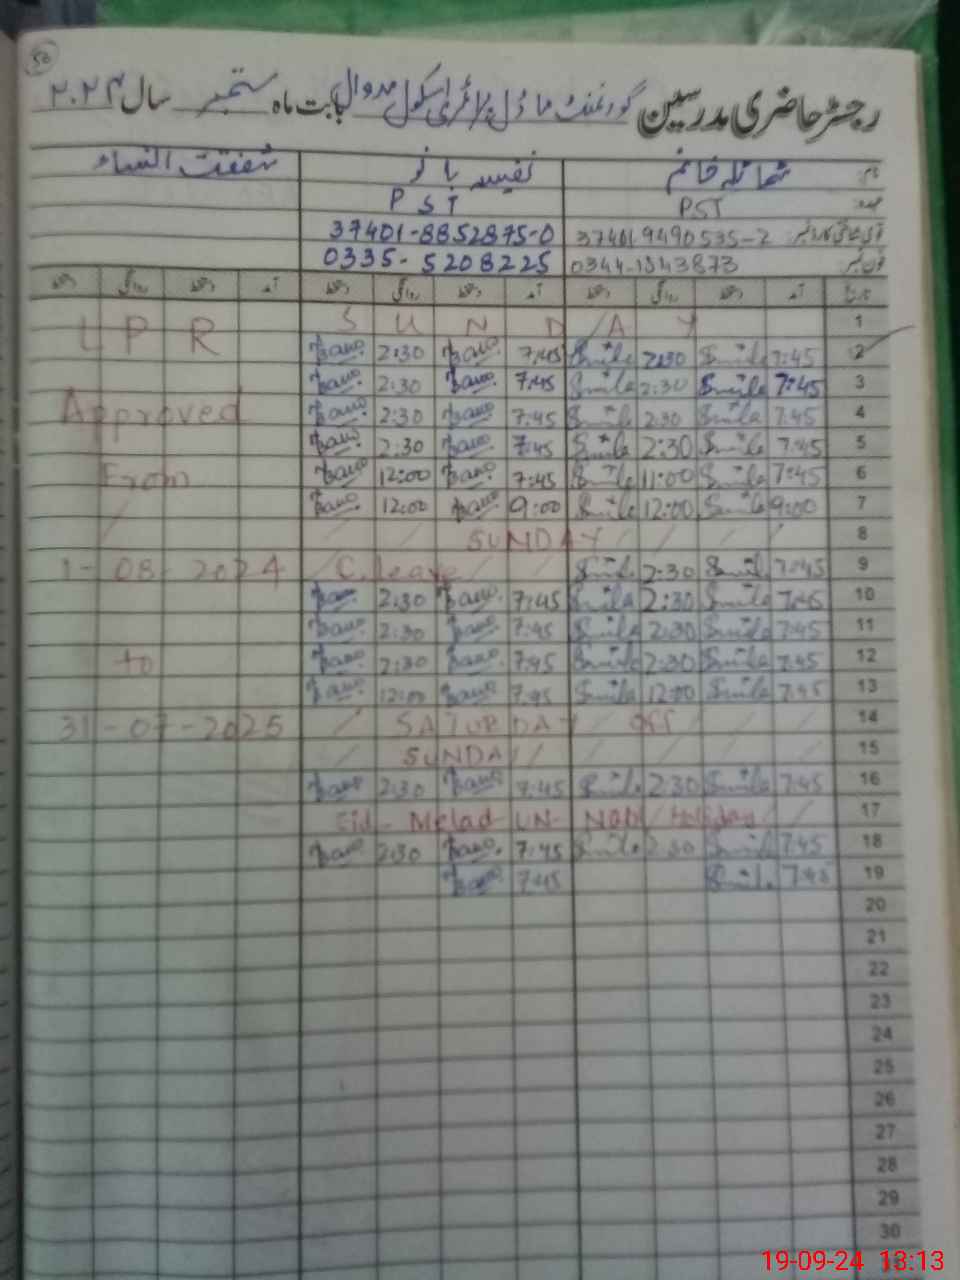 50
رجسٹر حاضری مدرسین گورنمنٹ ماڈل پرائمری اسکول مدوال بابت ماہ ستمبر سال ۲۰۲۴
نام: شمائلہ خانم نفیسہ بانو شفقت النساء
عہدہ: PST PST
قومی شناختی کارڈ نمبر: 37401-8852875-0
فون نمبر: 0344-1543873 0335-5208225
تاریخ آمد دستخط روانگی دستخط آمد دستخط روانگی دستخط آمد دستخط روانگی دستخط
L P R S U N D A Y 1
Bano 2:30 Bano 7:45 Smile 2:30 Smile 7:45 2
Bano 2:30 Bano 7:45 Smile 2:30 Smile 7:45 3
Approved Bano 2:30 Bano 7:45 Smile 2:30 Smile 7:45 4
Bano 2:30 Bano 7:45 Smile 2:30 Smile 7:45 5
From Bano 12:00 Bano 7:45 Smile 11:00 Smile 7:45 6
Bano 12:00 Bano 9:00 Smile 12:00 Smile 9:00 7
SUNDAY 8
1-08-2024 C.leave Smile 2:30 Smile 7:45 9
Bano 2:30 Bano 7:45 Smile 2:30 Smile 7:45 10
Bano 2:30 Bano 7:45 Smile 2:30 Smile 7:45 11
to Bano 2:30 Bano 7:45 Smile 2:30 Smile 7:45 12
Bano 12:00 Bano 7:45 Smile 12:00 Smile 7:45 13
31-07-2025 SATURDAY OFF 14
SUNDAY 15
Bano 2:30 Bano 7:45 Smile 2:30 Smile 7:45 16
Eid-Melad-UN-NABI Holiday 17
Bano 2:30 Bano 7:45 Smile 2:30 Smile 7:45 18
Bano 7:45 Smile 7:45 19
20
21
22
23
24
25
26
27
28
29
30
19-09-24 13:13